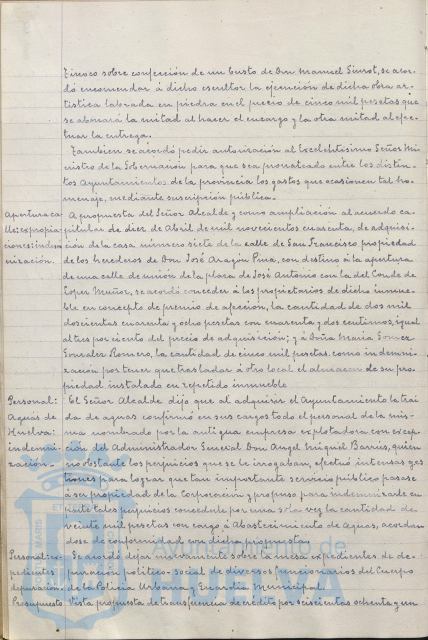 Tinoco sobre confección de un busto de Don Manuel Siurot, se acor-
dó encomendar á dicho escultor la ejecución de dicha obra ar-
tística labrada en piedra en el precio de cinco mil pesetas que
se abonará la mitad al hacer el encargo y la otra mitad al efec-
tuar la entrega.
Tambien se acordó pedir autorización al Excelentísimo Señor Mi-
nistro de la Gobernación para que sea prorrateado entre los distin-
tos Ayuntamientos de la provincia los gastos que ocasionen tal ho-
menaje, mediante suscripción pública.
Apertura ca- A propuesta del Señor Alcalde y como ampliación al acuerdo ca-
lle: expropia- pitular de diez de Abril de mil novecientos cuarenta, de adquisi-
ciones: indem- ción de la casa número siete de la calle de San Francisco propiedad
nización. de los herederos de Don José Aragón Pina, con destino á la apertura
de una calle de unión de la plaza de José Antonio con la del Conde de
López Muñoz, se acordó conceder á los propietarios de dicho inmue-
ble en concepto de premio de afección, la cantidad de dos mil
doscientas cuarenta y ocho pesetas con cuarenta y dos centimos, igual
al tres por ciento del precio de adquisición; y á Doña Maria Gomez
Gonzalez Romero, la cantidad de cinco mil pesetas como indemni-
zación por tener que trasladar á otro local el almacen de su pro-
piedad instalado en repetido inmueble
Personal: El Señor Alcalde dijo que al adquirir el Ayuntamiento la traí-
Aguas de da de aguas confirmó en sus cargos todo el personal de la mis-
Huelva: ma nombrado por la antigua empresa explotadora con excep-
indemni- ción del Administrador General Don Angel Miquiel Barrús, quien
zación. no obstante los perjuicios que se le irrogaban, efectuó intensas ges-
tiones para lograr que tan importante servicio público pasase
á ser propiedad de la Corporación y propuso para indemnizarle en
parte tales perjuicios concederle por una sola vez la cantidad de
veinte mil pesetas con cargo á Abastecimiento de Aguas, acordan
dose de conformidad con dicha propuesta.
Personal: ex- Se acordó dejar nuevamente sobre la mesa expedientes de de-
pedientes puración político-social de diversos funcionarios del Cuerpo
depuración. de la Policia Urbana y Guardia Municipal.
Presupuesto Vista propuesta de transferencia de crédito por seiscientas ochenta y un